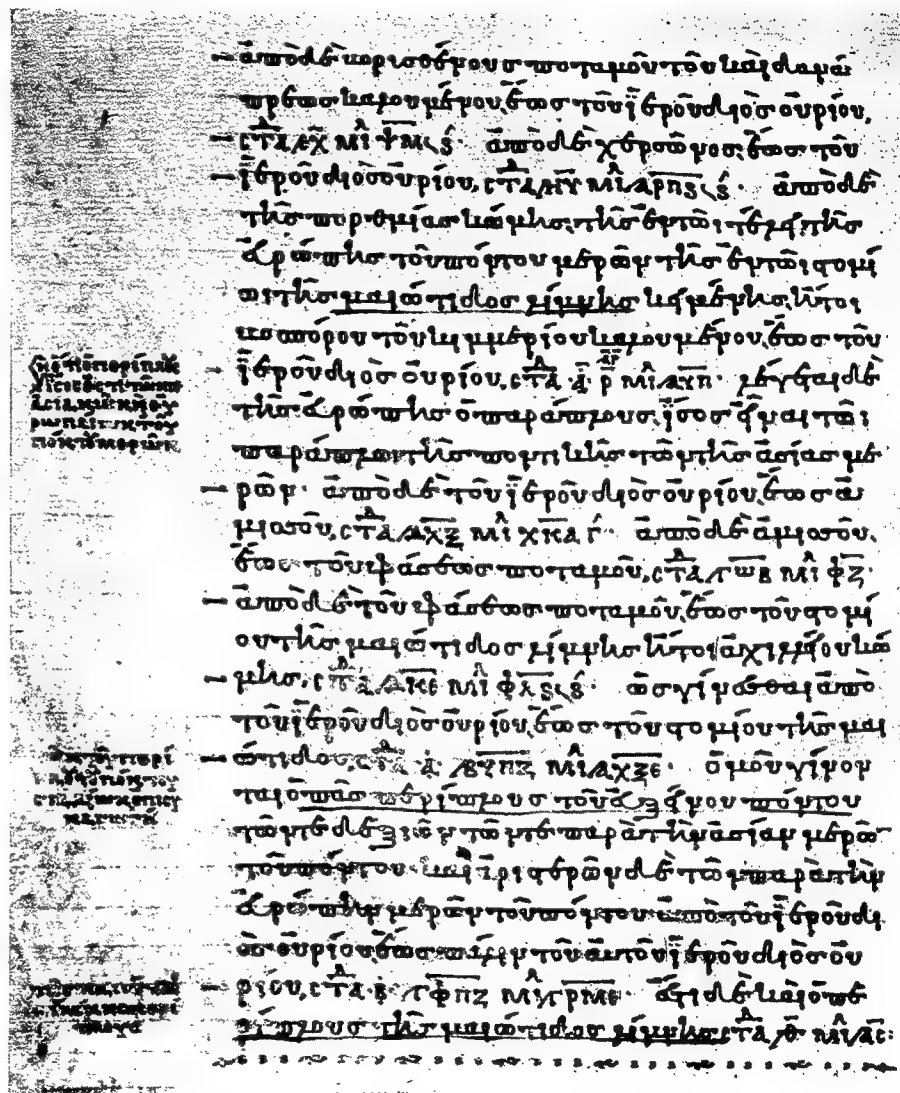 ἀπὸ δὲ βορισθένους ποταμοῦ τοῦ καὶ δανά
πρεως καλουμένου, ἕως τοῦ ἱεροῦ διὸς οὐρίου,
στα ͵εχ μι ψμϛ ς´. ἀπὸ δὲ χερσῶνος, ἕως τοῦ
ἱεροῦ διὸς οὐρίου, στα ͵ηυ μι ͵αρπϛ ς´. ἀπὸ δὲ
τῆς πορθμίας κώμης, τῆς ἐν τῶι τέλει τῆς
εὐρώπης τοῦ πόντου μερῶν τῆς ἐν τῶι στομί
ωι τῆς μαιώτιδος λίμνης κειμένης, ἤτοι
βοσπόρου τοῦ κιμμερίου καλουμένου, ἕως τοῦ
ἱεροῦ διὸς οὐρίου, στα α. ρ μι ͵αυπ. λέγεται δὲ
τῆς εὐρώπης ὁ παράπλους, ἴσος εἶναι τῶι
παράπλωι τῆς ποντικῆς τῶν τῆς ἀσίας με
ρῶν. ἀπὸ δὲ τοῦ ἱεροῦ διὸς οὐρίου, ἕως ἀ
μισοῦ, στα ͵δχξ μι χκα γ´. ἀπὸ δὲ ἀμισοῦ,
ἕως τοῦ φάσεως ποταμοῦ, στα ͵γωβ μι φζ.
ἀπὸ δὲ τοῦ φάσεως ποταμοῦ, ἕως τοῦ στομί
ου τῆς μαιώτιδος λίμνης ἤτοι ἀχιλλείου κώ
μης, στα ͵δκε μι φλϛ ς´. ὡς γίνεσθαι ἀπὸ
τοῦ ἱεροῦ διὸς οὐρίου, ἕως τοῦ στομίου τῆς μαι
ώτιδος, στα α. ͵βυπζ μι ͵αχξε. ὁμοῦ γίνον
ται ὁ πᾶς περίπλους τοῦ εὐξείνου πόντου
τῶν τε δεξιῶν τῶν τε παρὰ τὴν ἀσίαν μερῶ
τοῦ πόντου καὶ ἀριστερῶν δὲ τῶν παρὰ τὴν
εὐρώπην μερῶν τοῦ πόντου ἀπὸ τοῦ ἱεροῦ δι
ὸς οὐρίου, ἕως πάλιν τοῦ αὐτοῦ ἱεροῦ διὸς οὐ
ρίου, στα β. ͵γφπζ μι ͵γρμε. ἔτι δὲ καὶ ὁ πε
ρίπλους τῆς μαιώτιδος λίμνης στα ͵θ μι ͵ας: